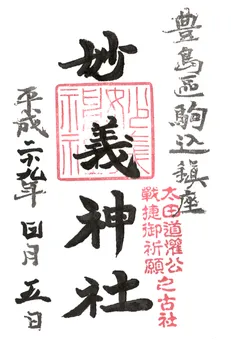 豊島區駒込鎮座
太田道灌公
戰捷御祈願
之古社
妙義神社
平成二九年四月五日